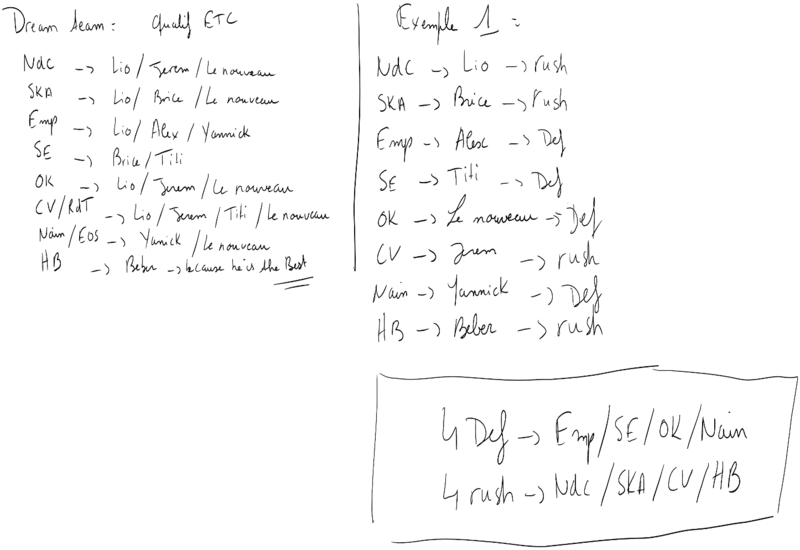 Dream team : Qualif ETC
NdC -> Lio / Jerem / Le nouveau
SKA -> Lio / Brice / Le nouveau
Emp -> Lio / Alex / Yannick
SE -> Brice / Titi
OK -> Lio / Jerem / Le nouveau
CV / RdT -> Lio / Jerem / Titi / Le nouveau
Nain / EOS -> Yanick / Le nouveau
HB -> Beber -> because he is the Best
Exemple 1 :
NdC -> Lio -> rush
SKA -> Brice -> rush
Emp -> Alex -> Def
SE -> Titi -> Def
OK -> Le nouveau -> Def
CV -> Jerem -> rush
Nain -> Yannick -> Def
HB -> Beber -> rush
↳ Def -> Emp / SE / OK / Nain
↳ rush -> NdC / SKA / CV / HB